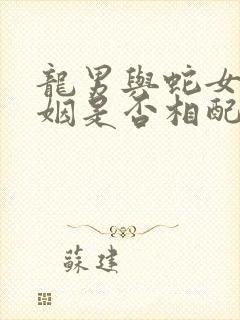 龍男與蛇女
姻是否相配
蘇建